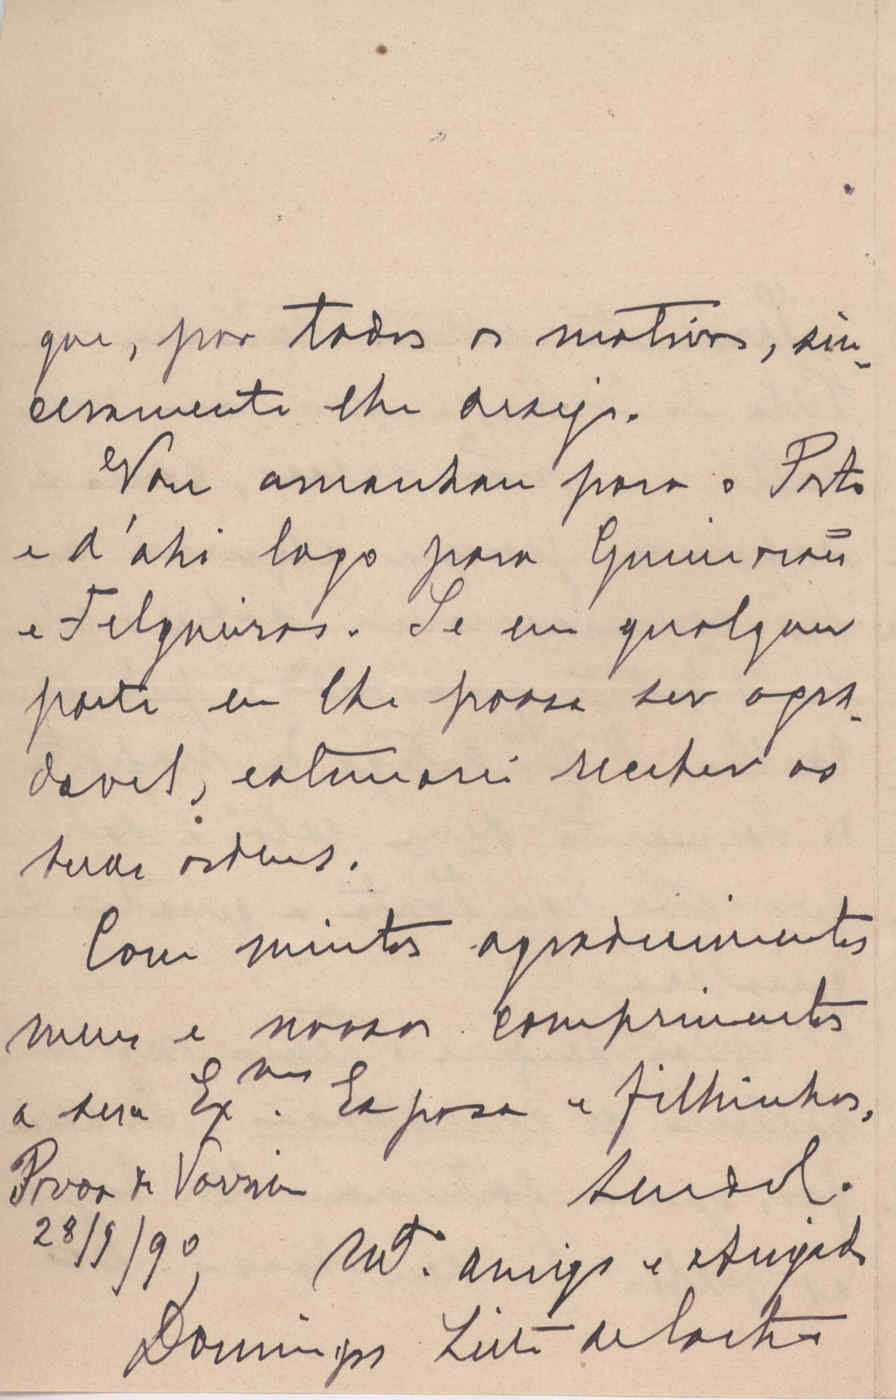 que, por todos os motivos, sin-
ceramente lhe desejo.
Vou amanhan para o Porto
e d'ahi logo para Guimarães
e Felgueiras. Se em qualquer
parte eu lhe possa ser agra-
davel, estimarei receber as
suas ordens.
Com muitos agradecimentos
meus e nossos comprimentos
a sua Ex.ma Esposa e filhinhos,
Povoa de Varzim
28/9/90
Mt. amigo e obrigado
Domingos Leite de Castro